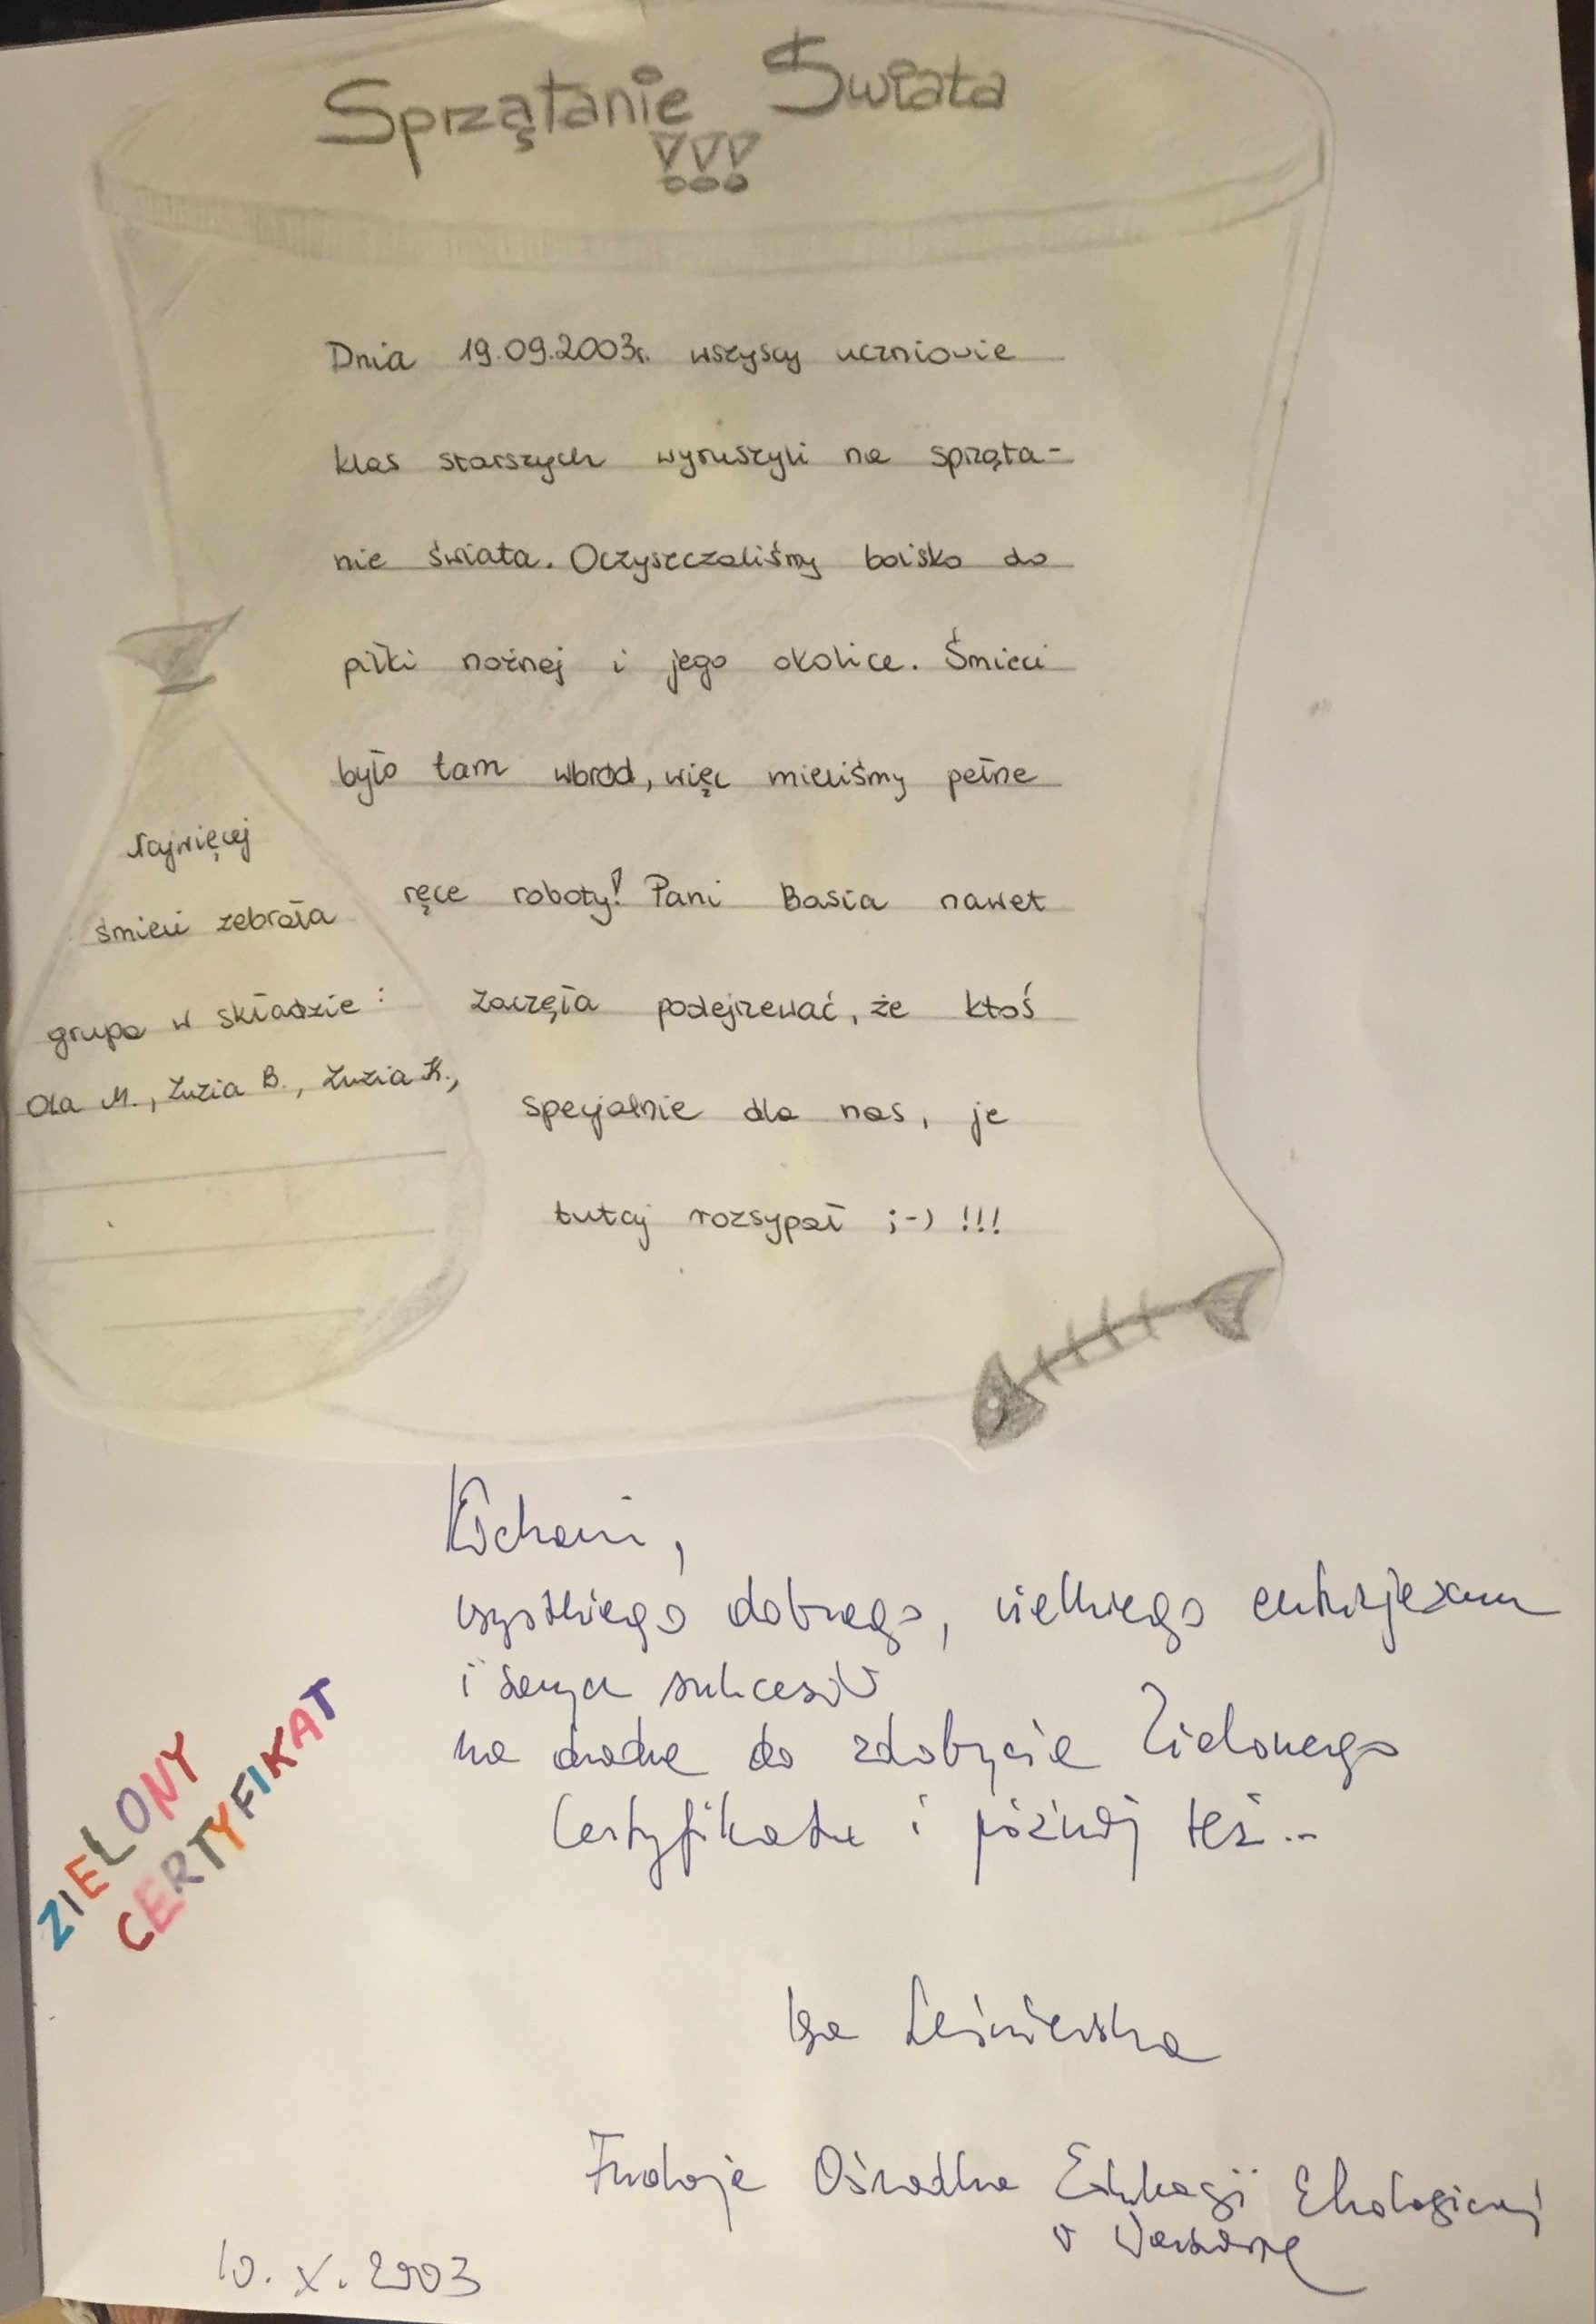 Sprzątanie Świata
!!!
Dnia 19.09.2003r. wszyscy uczniowie
klas starszych wyruszyli na sprząta-
nie świata. Oczyszczaliśmy boisko do
piłki nożnej i jego okolice. Śmieci
było tam wbród, więc mieliśmy pełne
ręce roboty! Pani Basia nawet
zaczęła podejrzewać, że ktoś
specjalnie dla nas, je
tutaj rozsypał ;-) !!!
Najwięcej
śmieci zebrała
grupa w składzie:
Ola M., Zuzia B., Zuzia K.,
Kochani,
wszystkiego dobrego, wielkiego entuzjazmu
i samych sukcesów
na drodze do zdobycia Zielonego
Certyfikatu i później też...
ZIELONY
CERTYFIKAT
Iga Leśniewska
Fundacja Ośrodka Edukacji Ekologicznej
w Warszawie
10. X. 2003